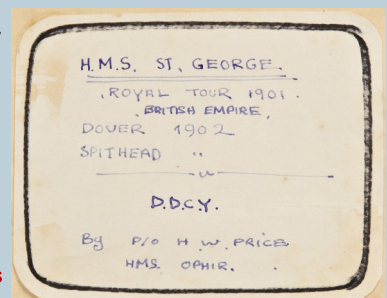 H.M.S. ST. GEORGE.
ROYAL TOUR 1901.
BRITISH EMPIRE,
DOVER 1902
SPITHEAD "
D.D.C.Y.
By P/O H.W. PRICE
HMS. OPHIR.